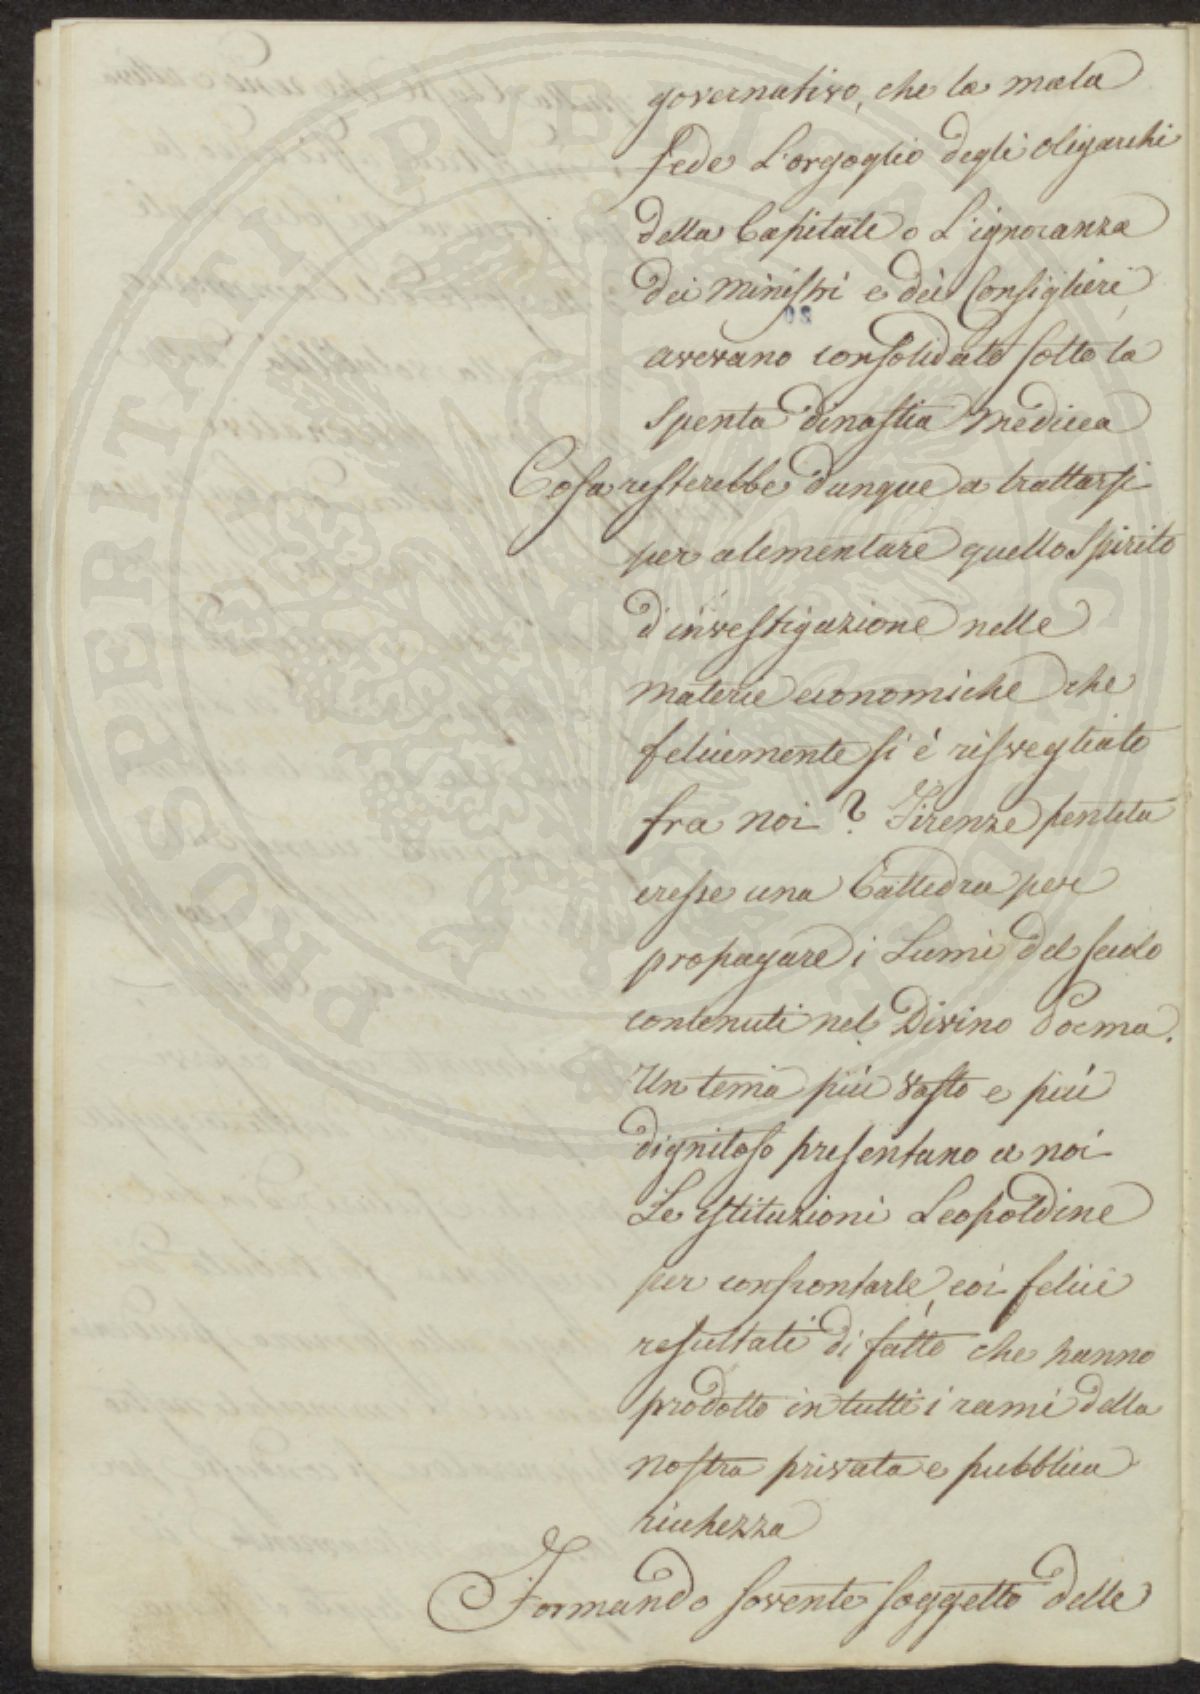 governativo, che la mala
fede L'orgoglio degli oligarchi
della Capitale o L'ignoranza
dei Ministri e dei Consiglieri,
avevano consolidato sotto la
spenta dinastia Medicea
Cosa resterebbe dunque a trattarsi
per alementare quello Spirito
d'investigazione nelle
materie economiche che
felicemente si é risvegliato
fra noi? Firenze pentita
eresse una Cattedra per
propagare i Lumi del secolo
contenuti nel Divino Poema.
Un tema piú vasto e piú
dignitoso presentano a noi
Le istituzioni Leopoldine
per confrontarle coi felici
resultati di fatto, che hanno
prodotto in tutti i rami della
nostra privata e pubblica
ricchezza
Formando sovente soggetto delle
PROSPERITATI PVBLICAE